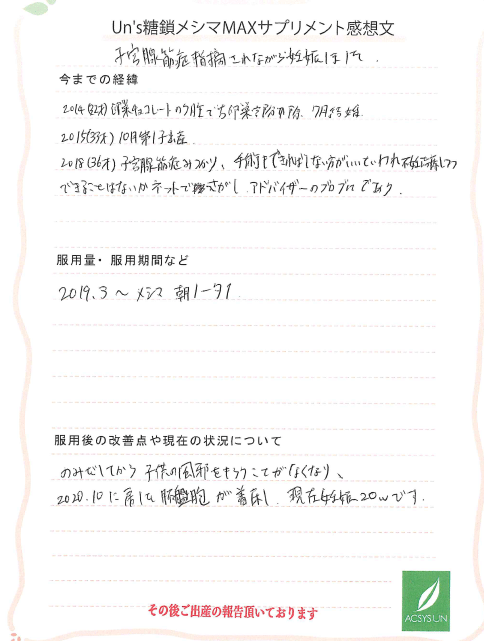 Un's糖鎖メシマMAXサプリメント感想文
子宮腺筋症指摘されながら妊娠しました.
今までの経緯
2014(32才) 卵巣チョコレートのう腫で右卵巣切除. 7月結婚.
2015(33才) 10月第1子出産
2018(36才) 子宮腺筋症みつかり、手術をできればしない方がいいといわれ不妊治療しつつ
できることはないかネットでさがし アドバイザーのブログにであう.
服用量・服用期間など
2019.3 〜 メシマ 朝1ータ1
服用後の改善点や現在の状況について
のみだしてから 子供の風邪をもらうことがなくなり、
2020.10に戻した胚盤胞が着床し. 現在妊娠20wです.
その後ご出産の報告頂いております
ACSYSUN